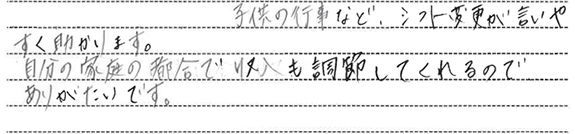 子供の行事など、シフト変更が言いや
すく助かります。
自分の家庭の都合で収入も調節してくれるので
ありがたいです。